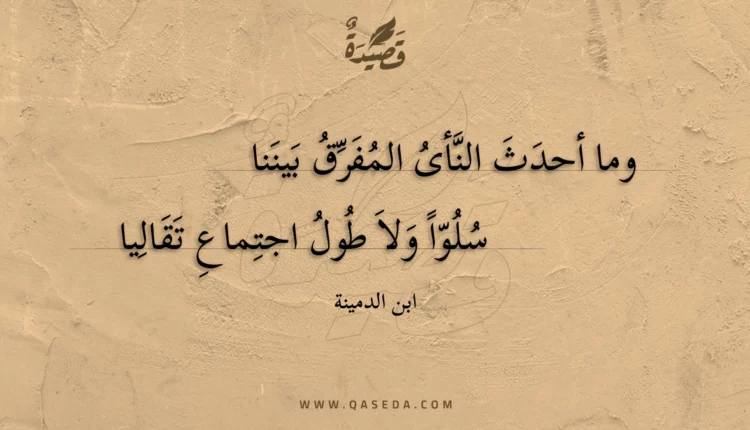 قَصِيْدَةٌ
وما أحدَثَ النَّأىُ المُفَرِّقُ بَينَنا
سُلُوّاً وَلاَ طُولُ اجتِماعِ تَقَالِيا
ابن الدمينة
WWW.QASEDA.COM